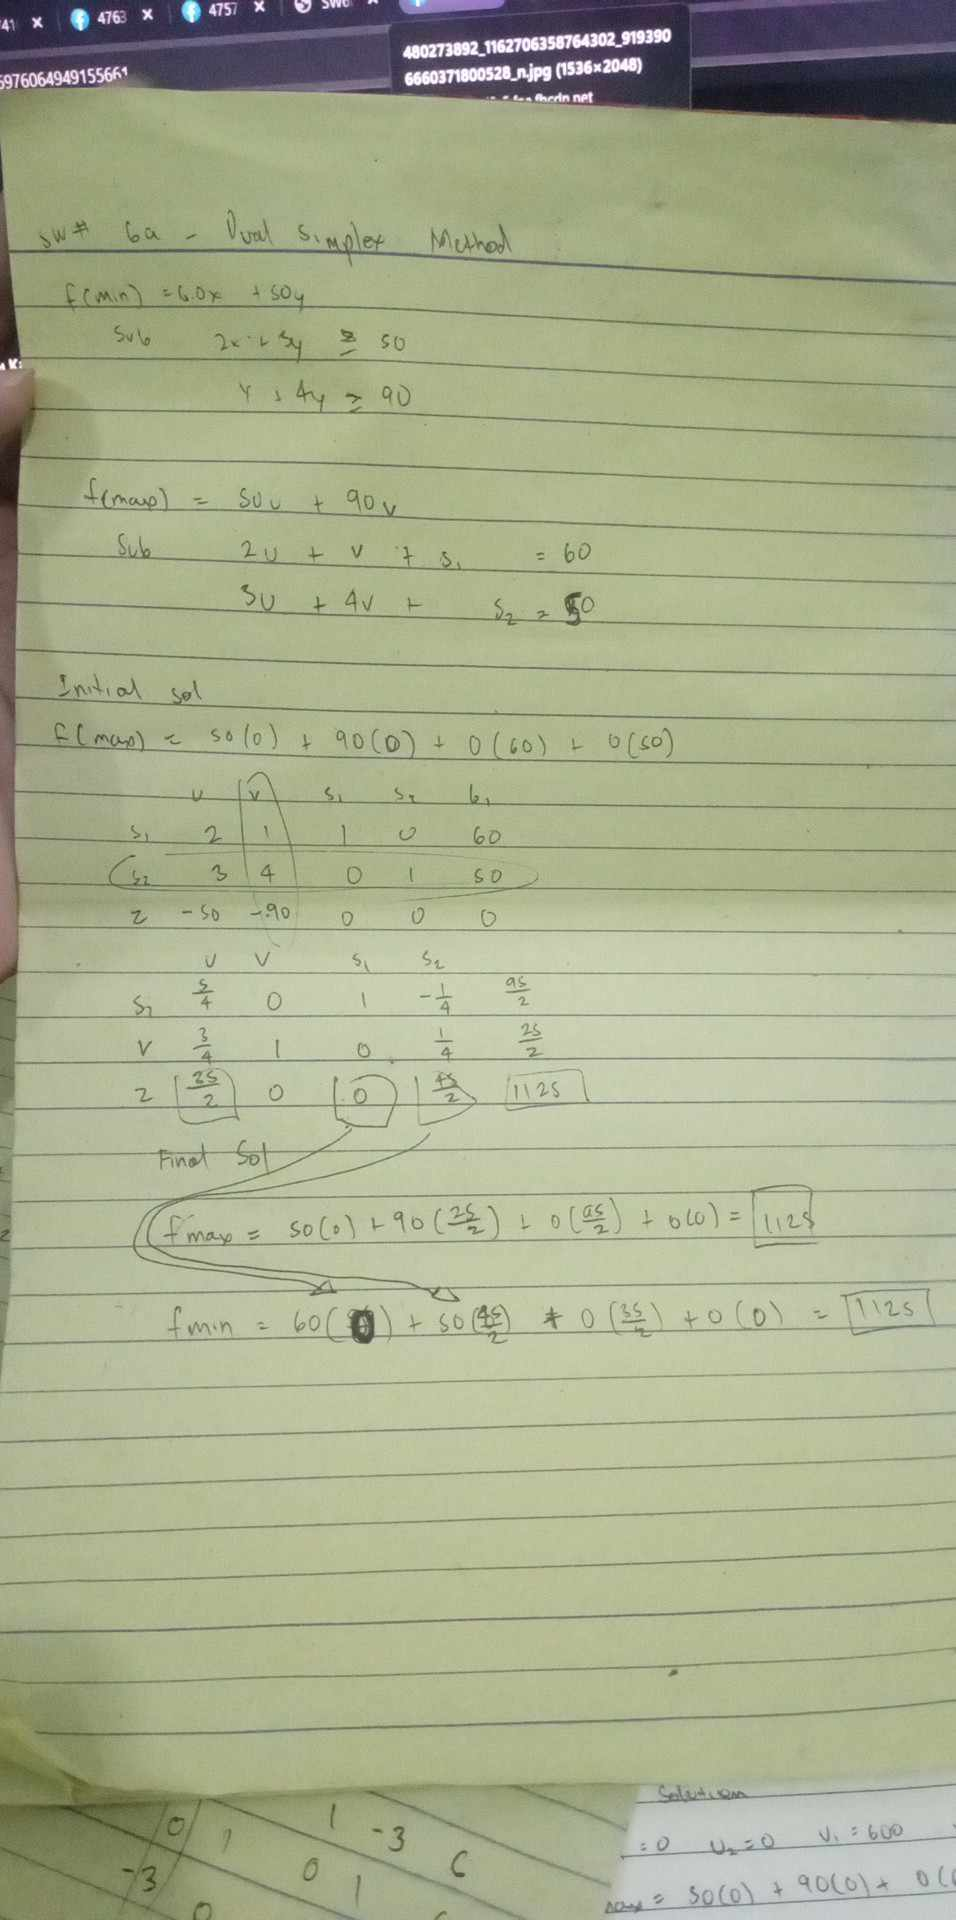 41 × 4763 × 4757 × SW6
480273892_1162706358764302_919390
5976064949155661
6660371800528_n.jpg (1536×2048)
fbcdn.net
SW# 6a - Dual Simplex Method
f(min) = 60x + 50y
Sub 2x + 3y ≥ 50
x + 4y ≥ 90
f(max) = 50u + 90v
Sub 2u + v + s₁ = 60
3u + 4v + s₂ = 50
Initial sol
f(max) = 50(0) + 90(0) + 0(60) + 0(50)
u v s₁ s₂ b₁
s₁ 2 1 1 0 60
s₂ 3 4 0 1 50
z -50 -90 0 0 0
u v s₁ s₂
s₁ 5/4 0 1 -1/4 95/2
v 3/4 1 0 1/4 25/2
z 35/2 0 0 45/2 1125
Final Sol
fmax = 50(0) + 90(25/2) + 0(95/2) + 0(0) = 1125
fmin = 60(0) + 50(45/2) + 0(35/2) + 0(0) = 1125
Solution
0 1 1 -3
= 0 U₂ = 0 V₁ = 600
-3 0 1 6
= 50(0) + 90(0) + 0(
0